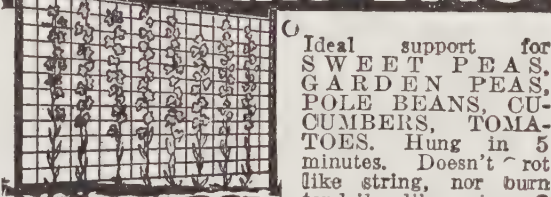 Ideal support for
SWEET PEAS,
GARDEN PEAS,
POLE BEANS, CU-
CUMBERS, TOMA-
TOES. Hung in 5
minutes. Doesn't rot
like string, nor burn